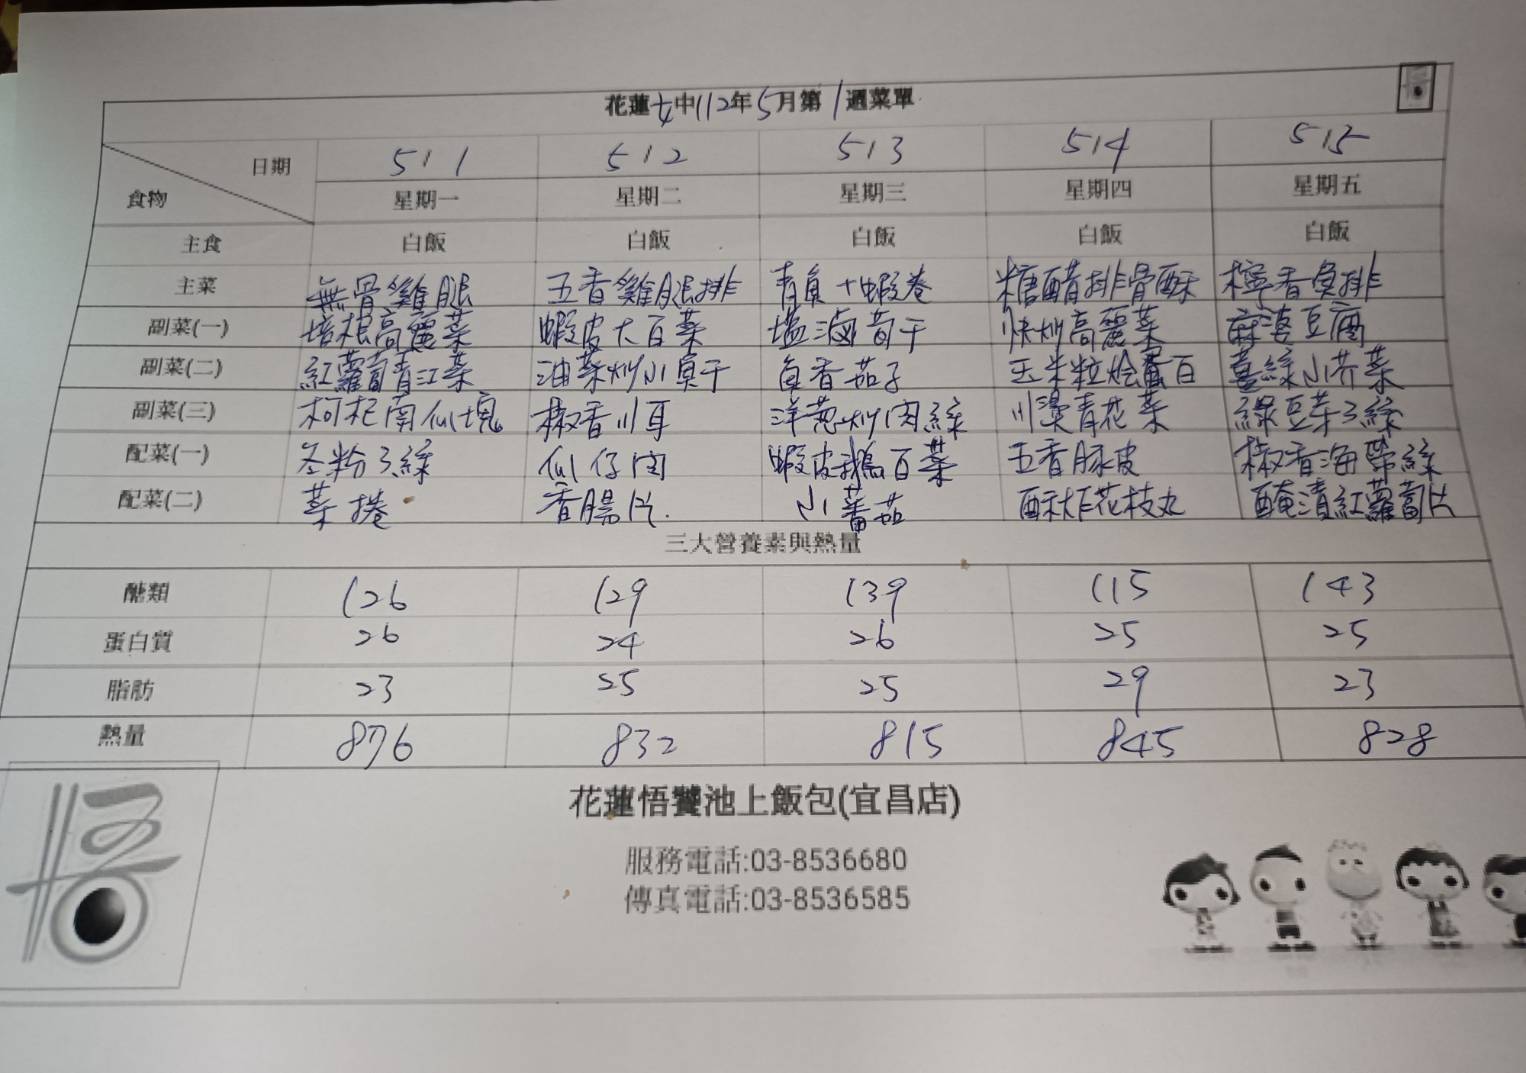 花蓮女中112年5月第1週菜單
日期 5/1 5/2 5/3 5/4 5/5
食物 星期一 星期二 星期三 星期四 星期五
主食 白飯 白飯 白飯 白飯 白飯
主菜 無骨雞腿 五香雞腿排 青魚+蝦卷 糖醋排骨酥 檸香魚排
副菜(一) 培根高麗菜 蝦皮大白菜 塩滷荀干 快炒高麗菜 麻婆豆腐
副菜(二) 紅蘿蔔青江菜 油菜炒小魚干 魚香茄子 玉米粒燴蛋白 薑絲小芥菜
副菜(三) 枸杞南瓜塊 椒香川耳 洋葱炒肉絲 川燙青花菜 綠豆芽3絲
配菜(一) 冬粉3絲 瓜仔肉 蝦皮鵝白菜 五香豚皮 椒香海帶絲
配菜(二) 菜捲 香腸片. 小蕃茄 酥炸花枝丸 醃漬紅蘿蔔片
三大營養素與熱量
醣類 126 129 139 115 143
蛋白質 26 24 26 25 25
脂肪 23 25 25 29 23
熱量 876 832 815 845 828
悟
花蓮悟饕池上飯包(宜昌店)
服務電話:03-8536680
傳真電話:03-8536585